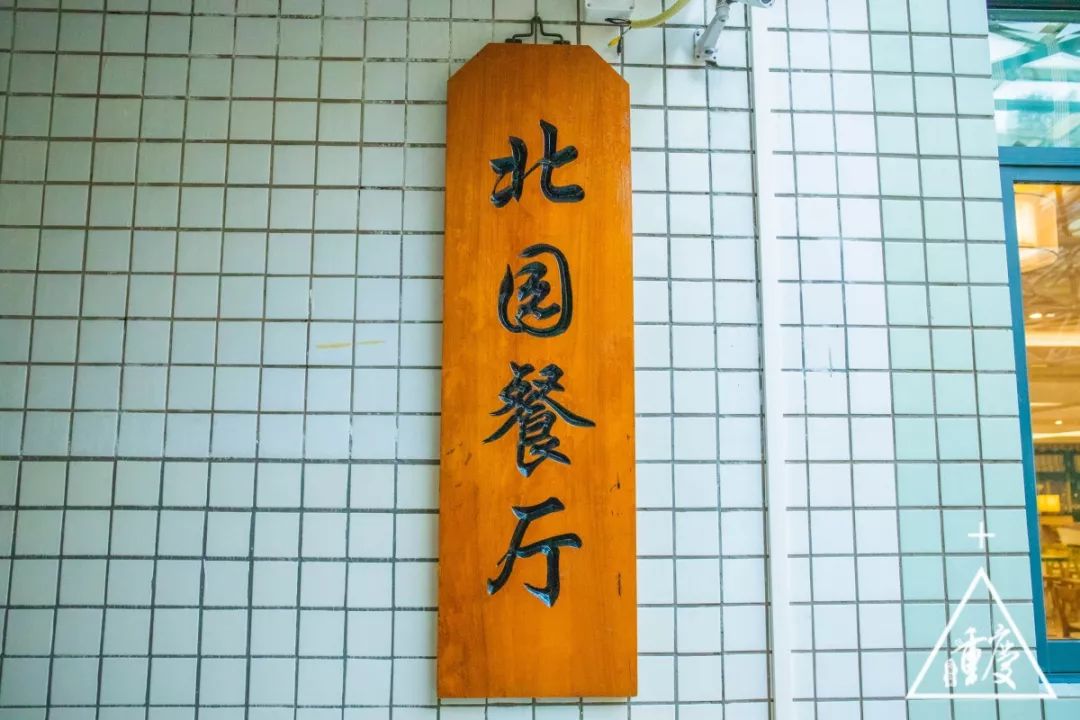 北园餐厅
重庆